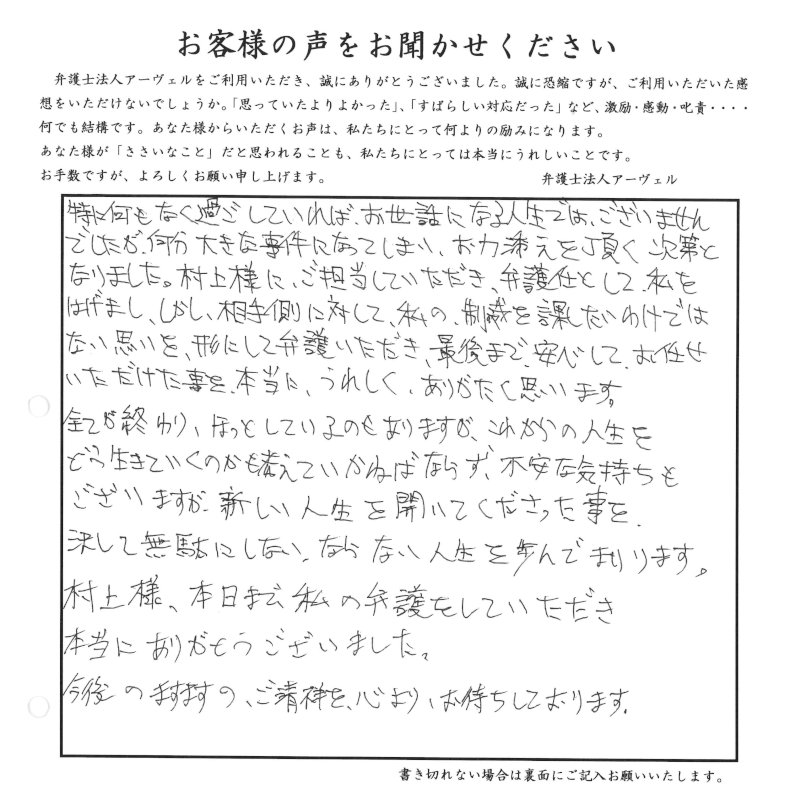 お客様の声をお聞かせください
弁護士法人アーヴェルをご利用いただき、誠にありがとうございました。誠に恐縮ですが、ご利用いただいた感
想をいただけないでしょうか。「思っていたよりよかった」、「すばらしい対応だった」など、激励・感動・叱責・・・・
何でも結構です。あなた様からいただくお声は、私たちにとって何よりの励みになります。
あなた様が「ささいなこと」だと思われることも、私たちにとっては本当にうれしいことです。
お手数ですが、よろしくお願い申し上げます。
弁護士法人アーヴェル
特に何もなく過ごしていれば、お世話になる人生では、ございません
でしたが、何分大きな事件になってしまい、お力添えを頂く次第と
なりました。村上様に、ご担当していただき、弁護任として、私を
はげまし、しかし、相手側に対して、私の、制裁を課したいわけでは
ない思いを、形にして弁護いただき、最後まで、安心して、お任せ
いただけた事を、本当に、うれしく、ありがたく思います。
全てが終わり、ほっとしているのもありますが、これからの人生を
どう生きていくのかも考えていかねばならず、不安な気持ちも
ございますが、新しい人生を開いてくださった事を、
決して無駄にしない、ならない人生を歩んでまいります。
村上様、本日まで、私の弁護をしていただき
本当にありがとうございました。
今後のますますの、ご清祥を、心より、お待ちしております。
書き切れない場合は裏面にご記入お願いいたします。